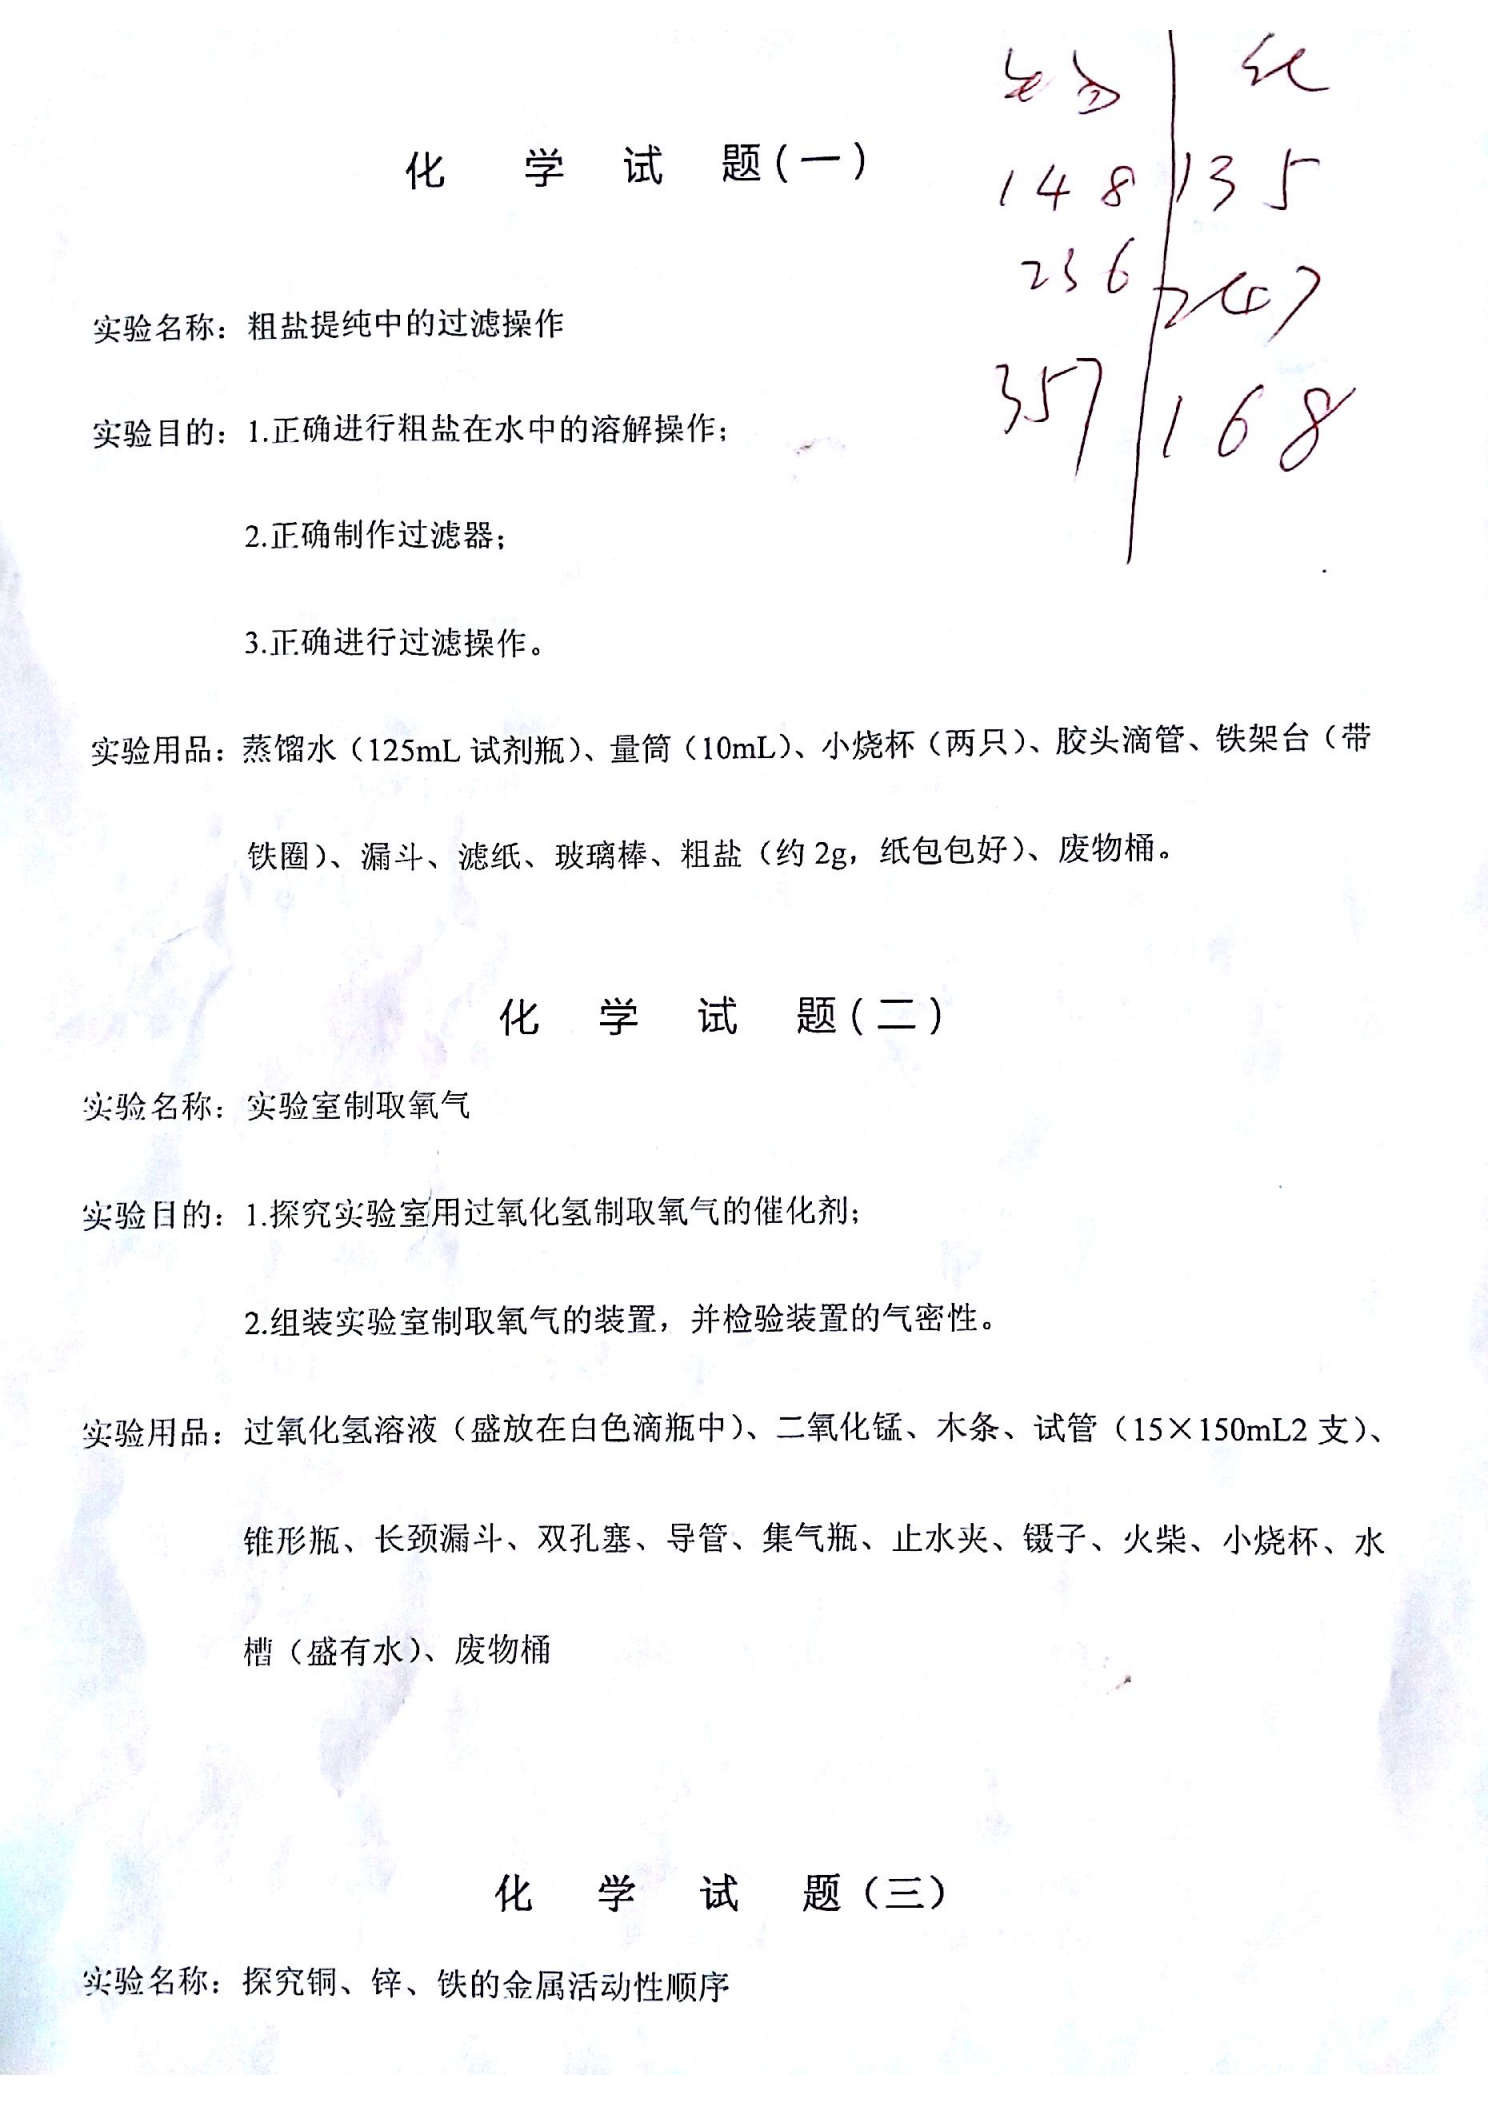 化 学 试 题(一)
148 135
236 247
357 168
实验名称：粗盐提纯中的过滤操作
实验目的：1.正确进行粗盐在水中的溶解操作；
2.正确制作过滤器；
3.正确进行过滤操作。
实验用品：蒸馏水（125mL 试剂瓶）、量筒（10mL）、小烧杯（两只）、胶头滴管、铁架台（带
铁圈）、漏斗、滤纸、玻璃棒、粗盐（约 2g，纸包包好）、废物桶。
化 学 试 题(二)
实验名称：实验室制取氧气
实验目的：1.探究实验室用过氧化氢制取氧气的催化剂；
2.组装实验室制取氧气的装置，并检验装置的气密性。
实验用品：过氧化氢溶液（盛放在白色滴瓶中）、二氧化锰、木条、试管（15×150mL2 支）、
锥形瓶、长颈漏斗、双孔塞、导管、集气瓶、止水夹、镊子、火柴、小烧杯、水
槽（盛有水）、废物桶
化 学 试 题（三）
实验名称：探究铜、锌、铁的金属活动性顺序